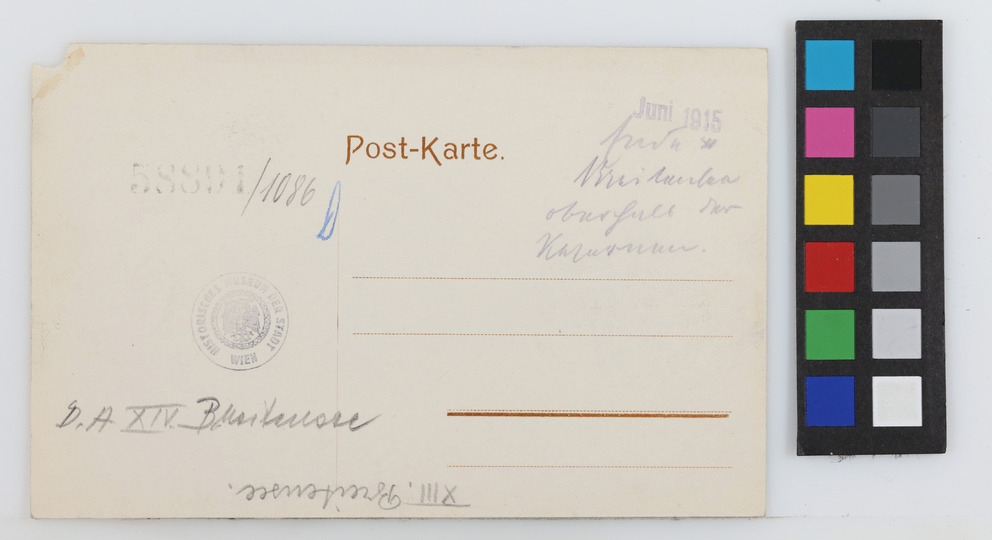 Juni 1915
Post-Karte.
58891/1086
Ende
Breitensee
oberhalb der
Kasernen.
HISTORISCHES MUSEUM DER STADT WIEN
D. A XIV. Breitensee
XIII. Breitensee.